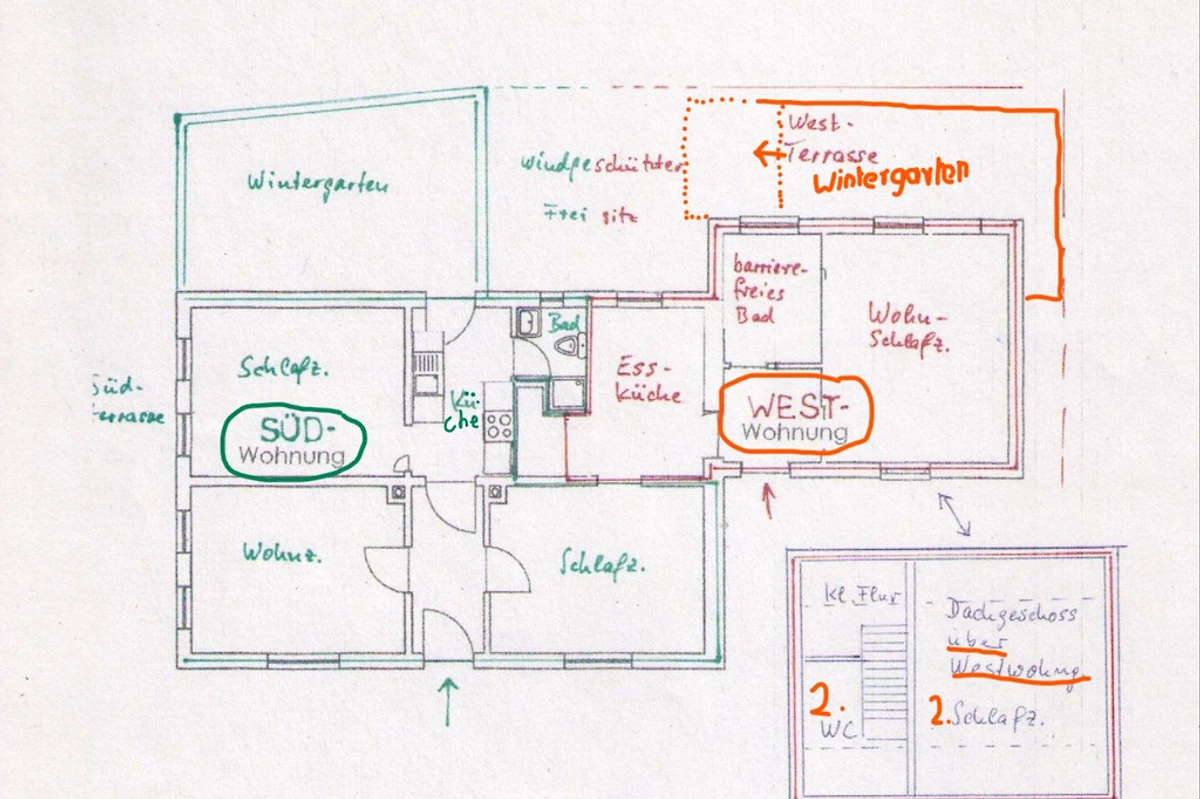 West-
Terrasse
Wintergarten
windgeschützter
Frei sitz
Wintergarten
barriere-
freies
Bad
Wohn-
Schlafz.
Bad
Ess-
küche
Schlafz.
Kü-
che
Süd-
terrasse
SÜD-
Wohnung
WEST-
Wohnung
Wohnz.
Schlafz.
kl. Flur
Dachgeschoss
über
Westwohng
2.
WC
2. Schlafz.